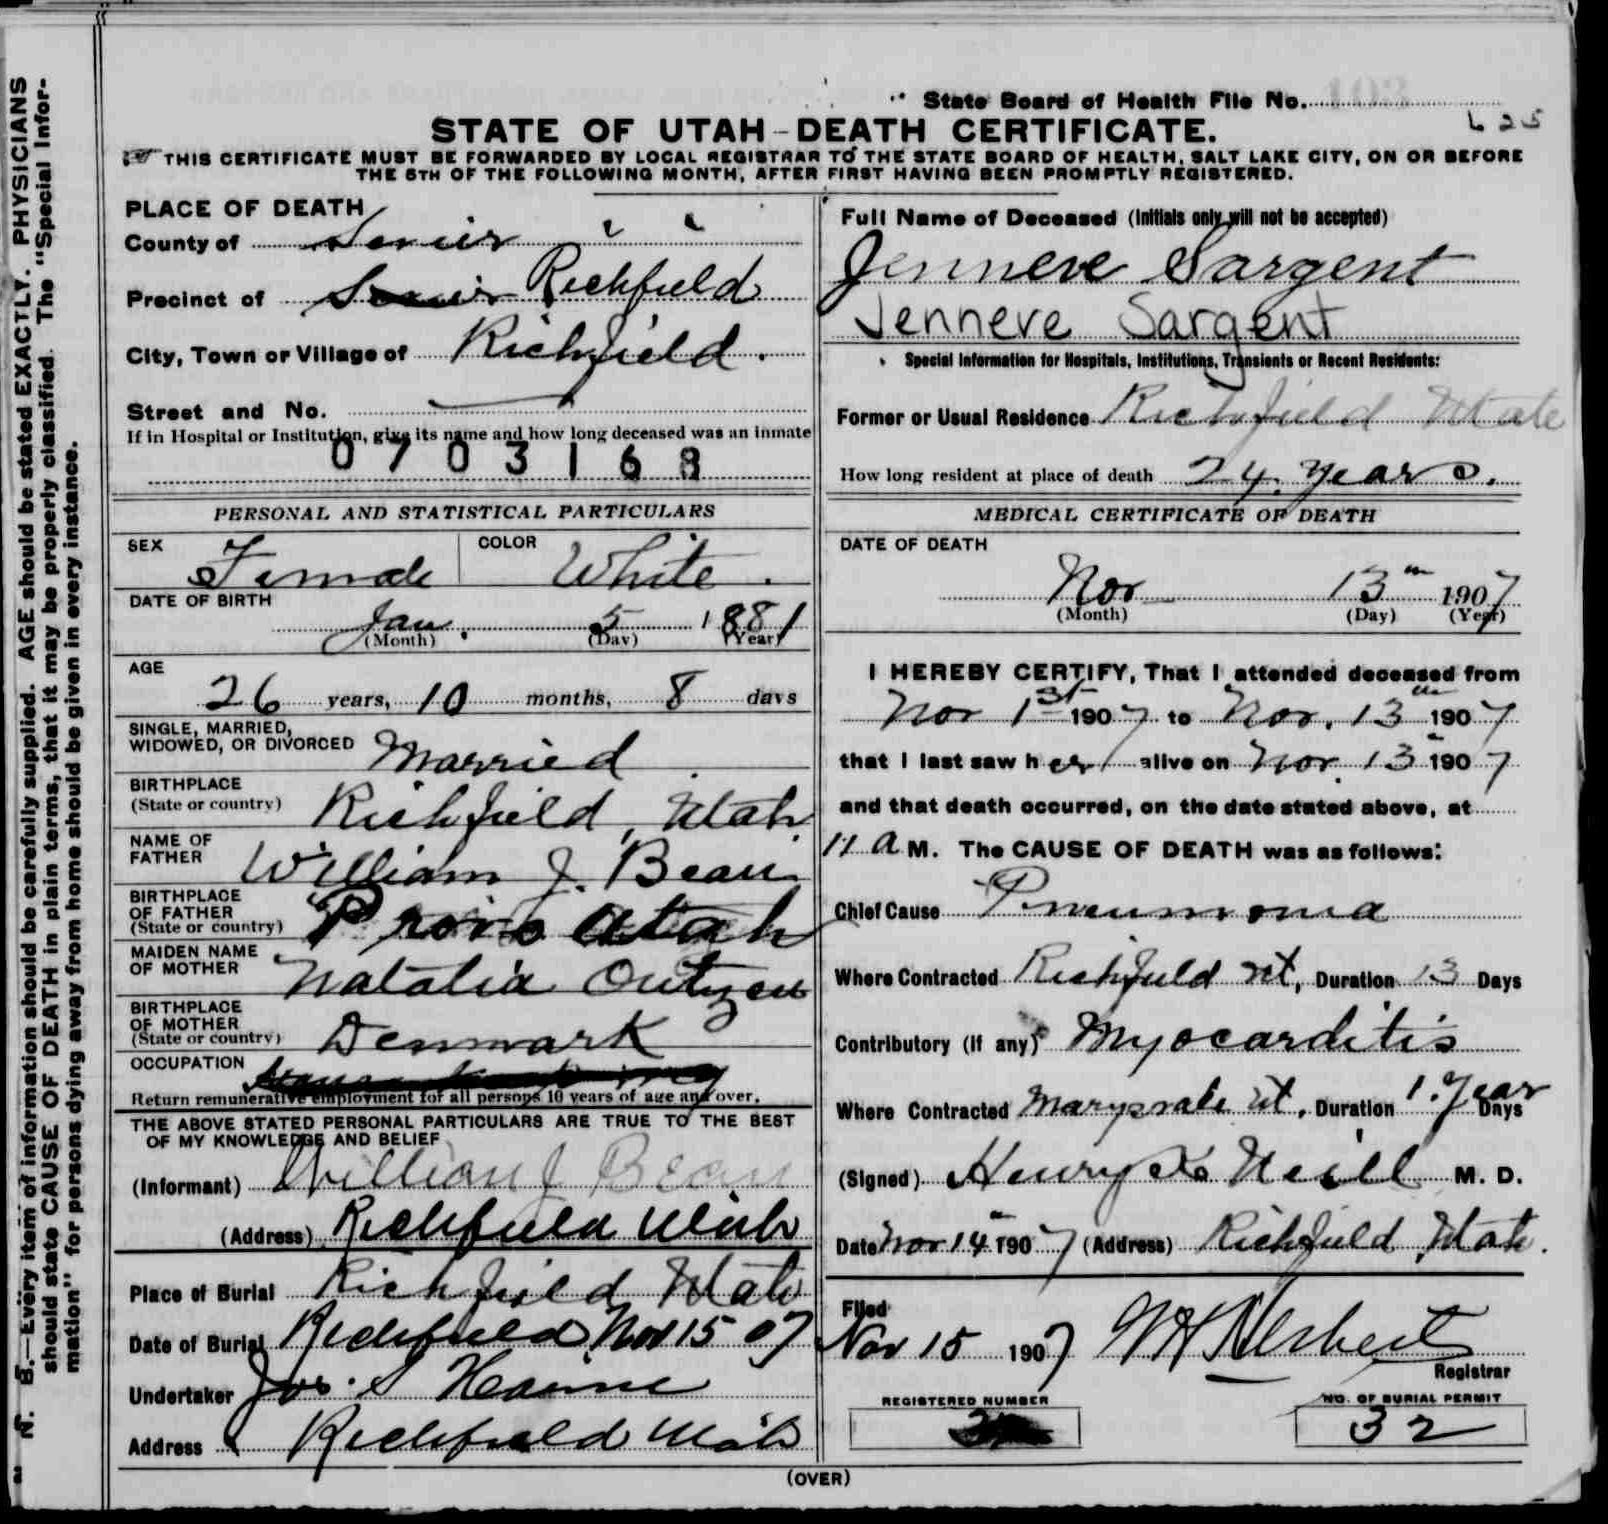 State Board of Health File No.
625
STATE OF UTAH-DEATH CERTIFICATE.
THIS CERTIFICATE MUST BE FORWARDED BY LOCAL REGISTRAR TO THE STATE BOARD OF HEALTH, SALT LAKE CITY, ON OR BEFORE
THE 5TH OF THE FOLLOWING MONTH, AFTER FIRST HAVING BEEN PROMPTLY REGISTERED.
N. B.—Every item of information should be carefully supplied. AGE should be stated EXACTLY. PHYSICIANS
should state CAUSE OF DEATH in plain terms, that it may be properly classified. The "Special Infor-
mation" for persons dying away from home should be given in every instance.
PLACE OF DEATH
County of Sevier
Precinct of Richfield
City, Town or Village of Richfield.
Street and No.
If in Hospital or Institution, give its name and how long deceased was an inmate
0703168
PERSONAL AND STATISTICAL PARTICULARS
SEX Female COLOR White.
DATE OF BIRTH
Jan. 5 1881
(Month) (Day) (Year)
AGE
26 years, 10 months, 8 days
SINGLE, MARRIED,
WIDOWED, OR DIVORCED Married.
BIRTHPLACE
(State or country) Richfield, Utah.
NAME OF
FATHER William J. Bean
BIRTHPLACE
OF FATHER
(State or country) Provo Utah
MAIDEN NAME
OF MOTHER Natalia Outzen
BIRTHPLACE
OF MOTHER
(State or country) Denmark
OCCUPATION
Return remunerative employment for all persons 10 years of age and over.
THE ABOVE STATED PERSONAL PARTICULARS ARE TRUE TO THE BEST
OF MY KNOWLEDGE AND BELIEF
(Informant) William J Bean
(Address) Richfield Utah
Place of Burial Richfield Utah
Date of Burial Richfield Nov 15 07
Undertaker Jos. S
Address Richfield Utah
Full Name of Deceased (Initials only will not be accepted)
Jenneve Sargent
Jenneve Sargent
Special Information for Hospitals, Institutions, Transients or Recent Residents:
Former or Usual Residence Richfield Utah
How long resident at place of death 24. years.
MEDICAL CERTIFICATE OF DEATH
DATE OF DEATH
Nov 13th 1907
(Month) (Day) (Year)
I HEREBY CERTIFY, That I attended deceased from
Nov 1st 1907 to Nov. 13th 1907
that I last saw her alive on Nov. 13th 1907
and that death occurred, on the date stated above, at
11 a M. The CAUSE OF DEATH was as follows:
Chief Cause Pneumonia
Where Contracted Richfield Ut, Duration 13 Days
Contributory (if any) Myocarditis
Where Contracted Marysvale Ut, Duration 1. Year Days
(Signed) Henry K Neill M. D.
Date Nov 14th 1907 (Address) Richfield, Utah.
Filed
Nov 15 1907 W H Herbert
Registrar
REGISTERED NUMBER
NO. OF BURIAL PERMIT
32
(OVER)